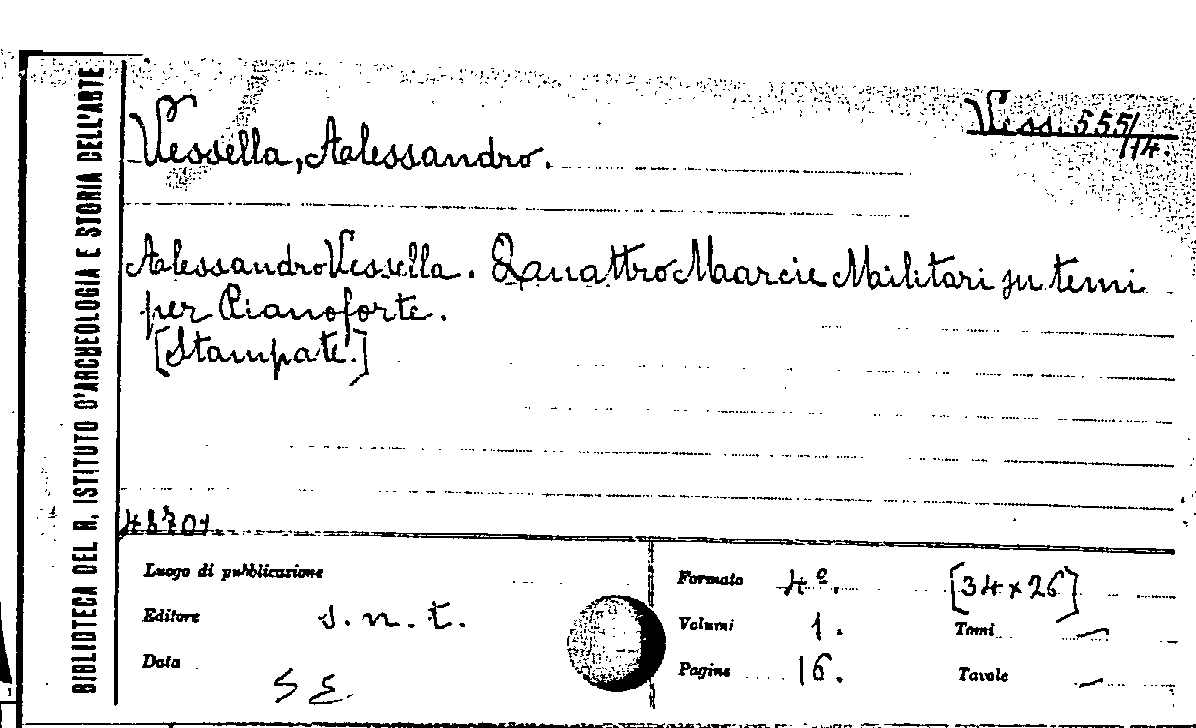 BIBLIOTECA DEL R. ISTITUTO D'ARCHEOLOGIA E STORIA DELL'ARTE
Vess. 555/14.
Vessella, Alessandro.
Alessandro Vessella. Quattro Marcie Militari su temi
per Pianoforte.
[Stampate.]
48701.
Luogo di pubblicazione
Editore s.n.t.
Data
Formato 4º. [34 x 26]
Volumi 1. Tomi —
Pagine 16. Tavole —